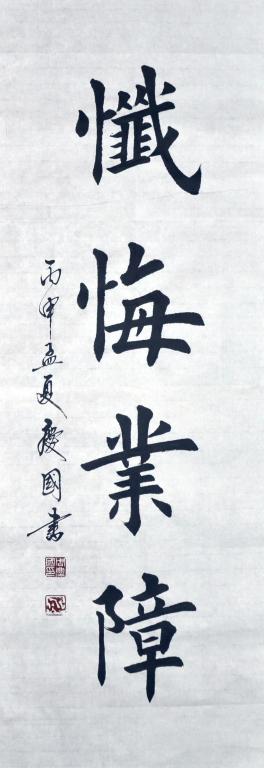 懺悔業障
丙申孟夏慶國書